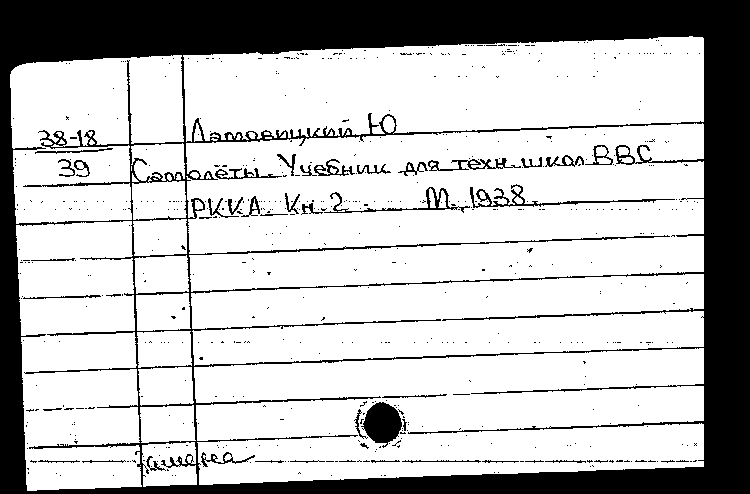 38-18
39
Латовицкий, Ю
Самолёты. Учебник для техн. школ ВВС
РККА. Кн. 2. М., 1938.
Замена